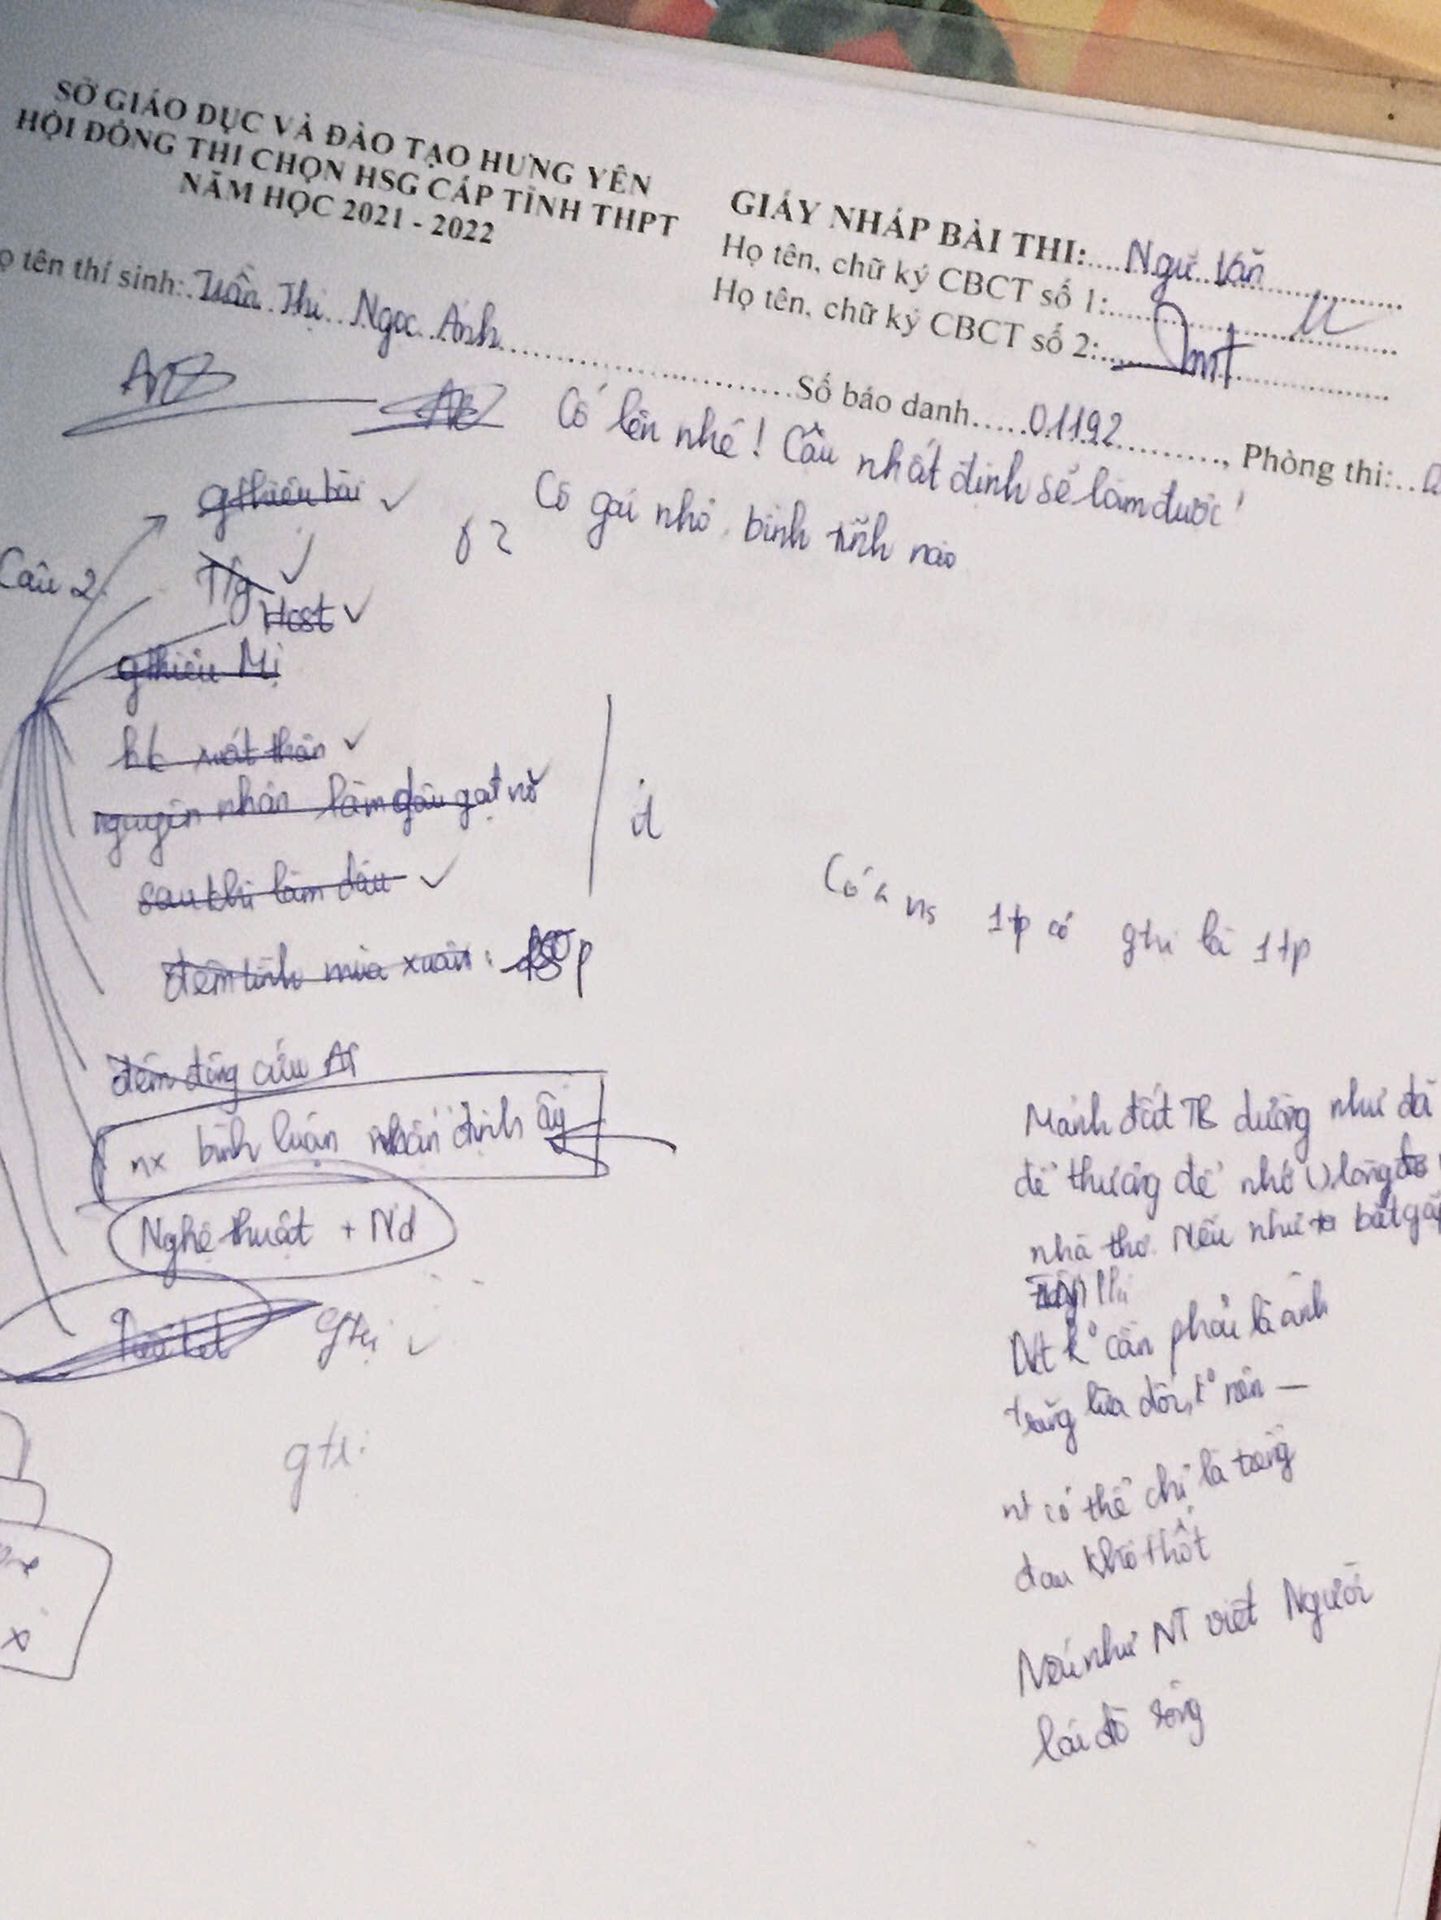 SỞ GIÁO DỤC VÀ ĐÀO TẠO HƯNG YÊN
HỘI ĐỒNG THI CHỌN HSG CẤP TỈNH THPT
NĂM HỌC 2021 - 2022
GIẤY NHÁP BÀI THI: Ngữ Văn
Họ tên, chữ ký CBCT số 1:
Họ tên, chữ ký CBCT số 2:
ọ tên thí sinh: Trần Thị Ngọc Ánh
Số báo danh 01192, Phòng thi:
Cố lên nhé! Cậu nhất định sẽ làm được!
Cô gái nhỏ, bình tĩnh nào
gthiệu bài
Câu 2
Tg
Hcst
gthiệu Mị
hc xuất thân
nguyên nhân làm dâu gạt nợ
sau khi làm dâu
đêm tình mùa xuân:
đêm đông cứu AP
nx bình luận nhận định ấy
Nghệ thuật + Nd
gtrị
gtr
Có ns 1tp có gtrị là 1tp
Mảnh đất TB dường như đã
để thương để nhớ () lòng
nhà thơ. Nếu như ta bắt gặ
Nt k° cần phải là ánh
trăng lừa dối, k° nên —
nt có thể chỉ là tiếng
đau khổ thốt
Nếu như NT viết Người
lái đò sông